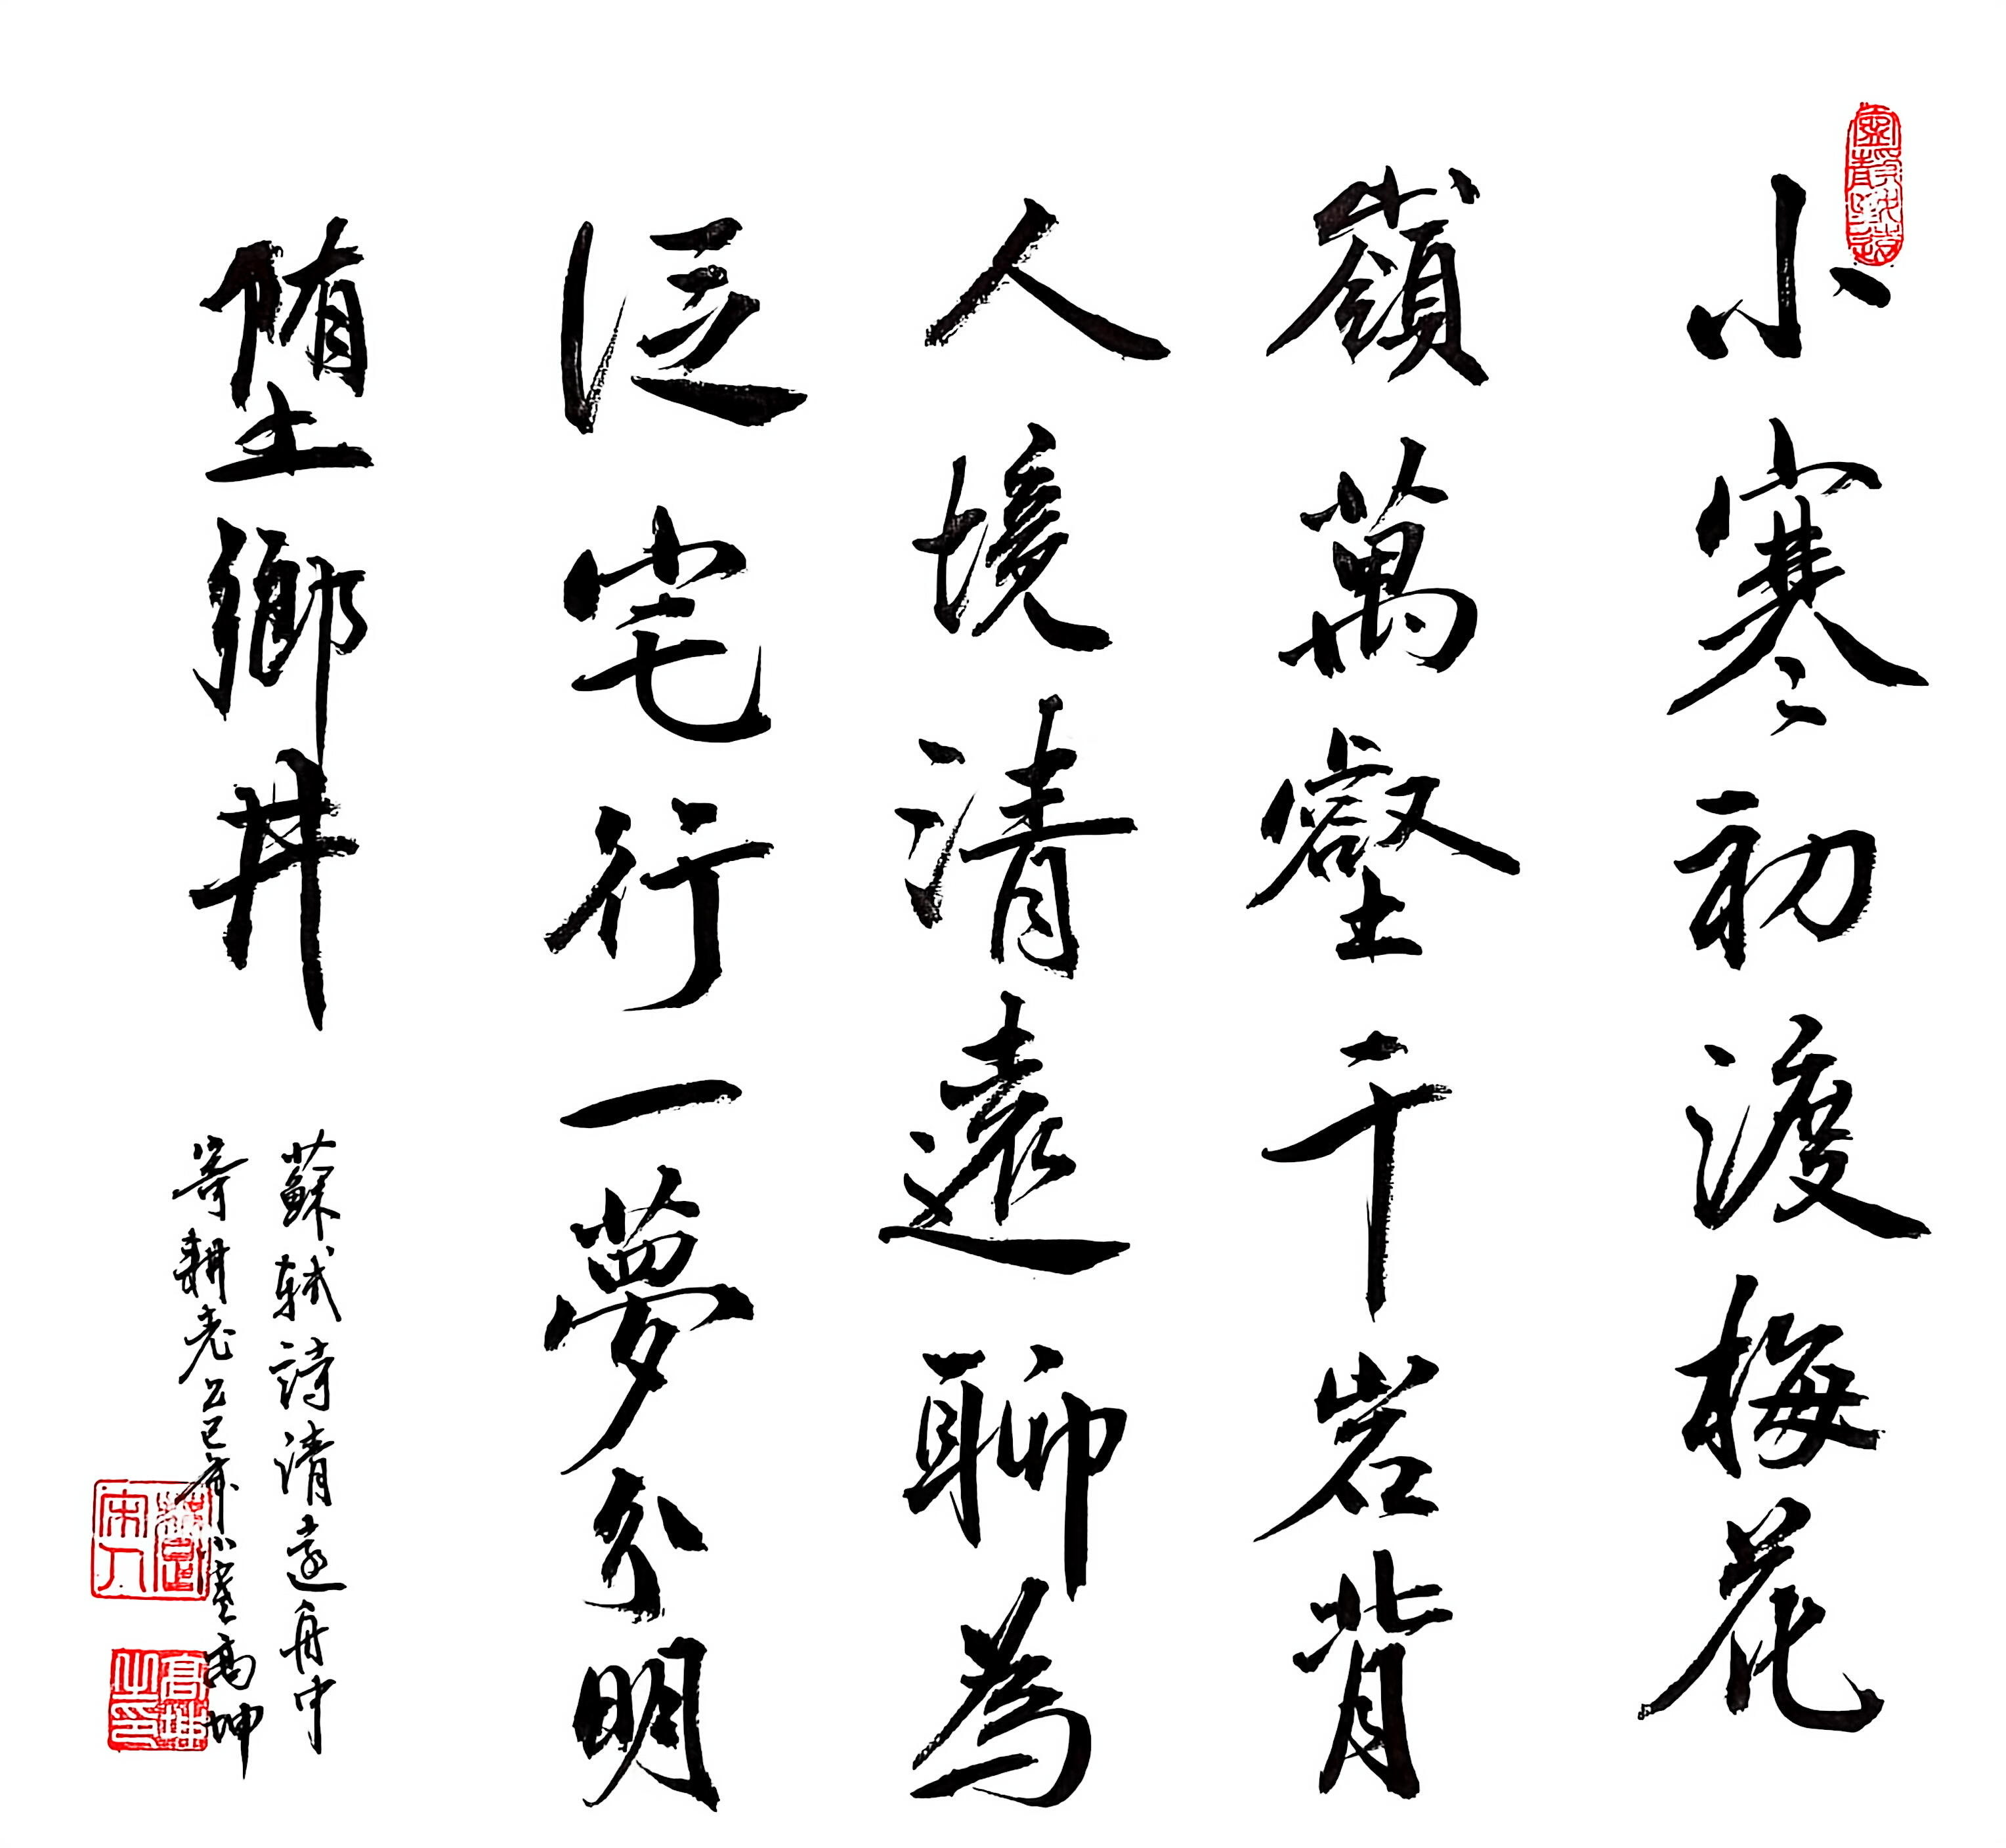 小寒初渡梅花
嶺萬壑千岩背
人境清遠聊為
泛宅行一夢分明
墮鄉井
蘇軾詩清遠舟中
寄耕老乙巳小寒高坤
高坤之印